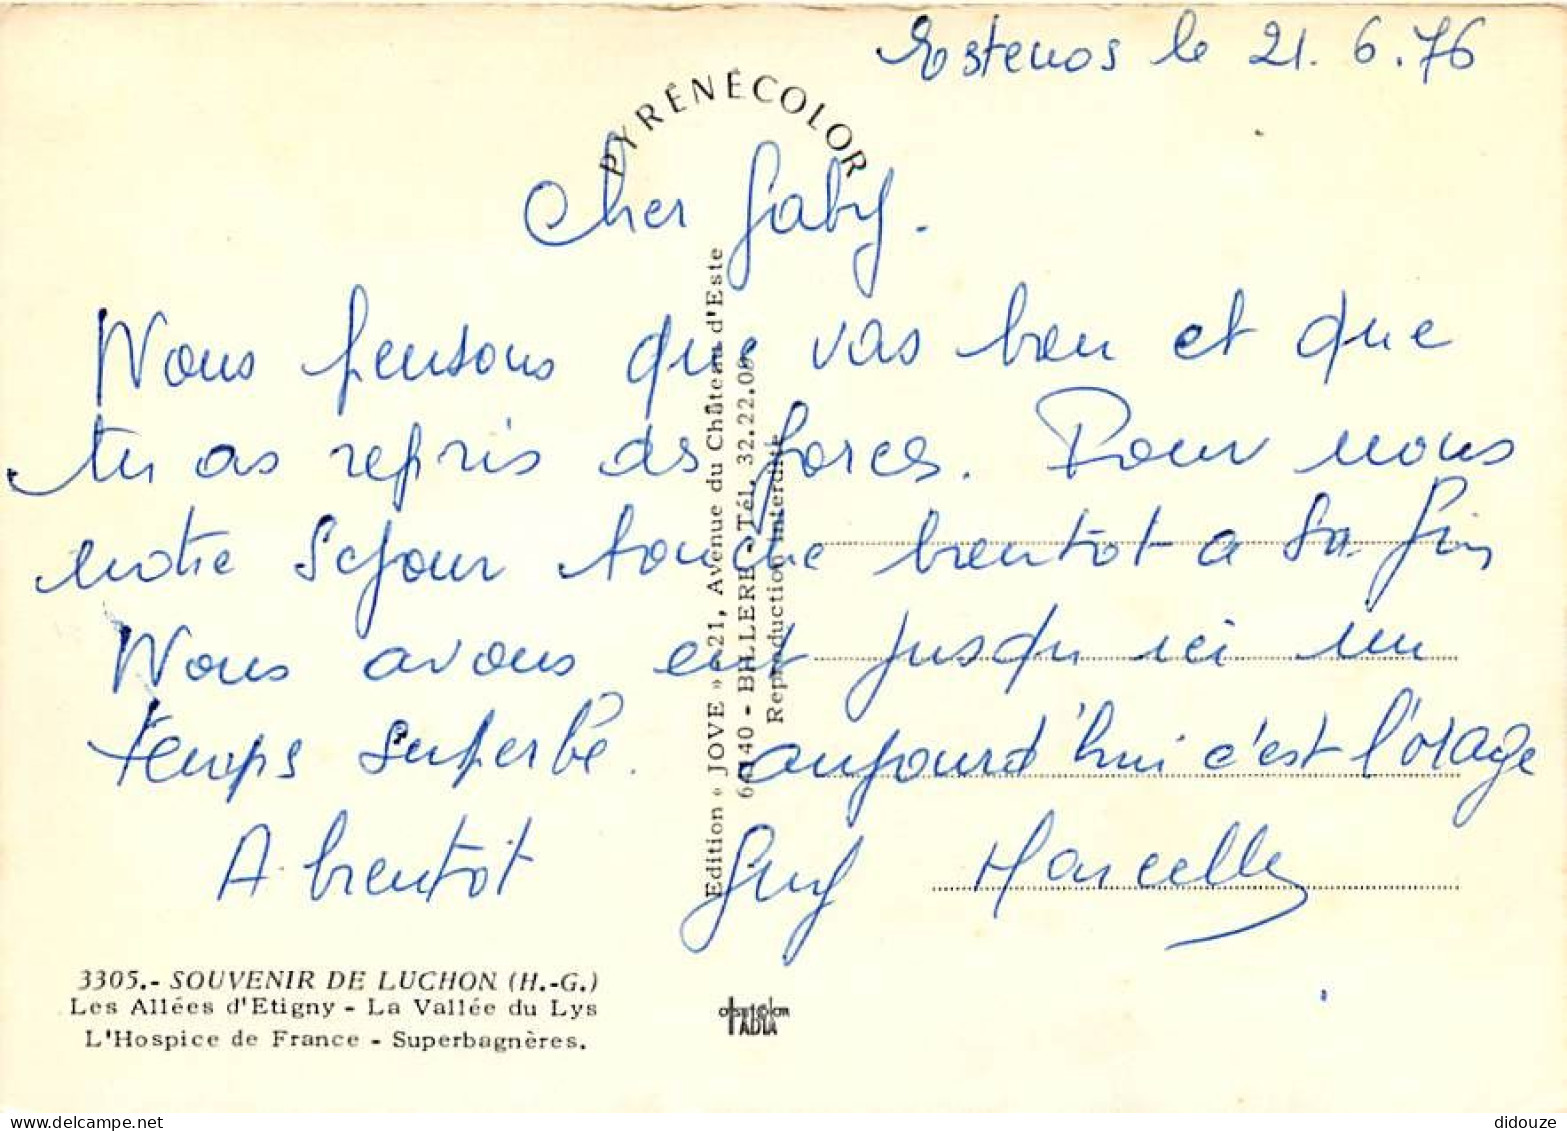 Estenos le 21.6.76
PYRÉNÉCOLOR
Cher Gaby.
Nous pensons que vas bien et que
tu as repris des forces. Pour nous
notre séjour touche bientot a sa fin
Nous avons eut jusqu'ici un
temps superbe. aujourd'hui c'est l'orage
A bientot Guy Marcelle
Edition « JOVE » - 21, Avenue du Château d'Este
64140 - BILLERE - Tél. 32.22.09
Reproduction interdite
3305.- SOUVENIR DE LUCHON (H.-G.)
Les Allées d'Etigny - La Vallée du Lys
L'Hospice de France - Superbagnères.
IADIA
didouze